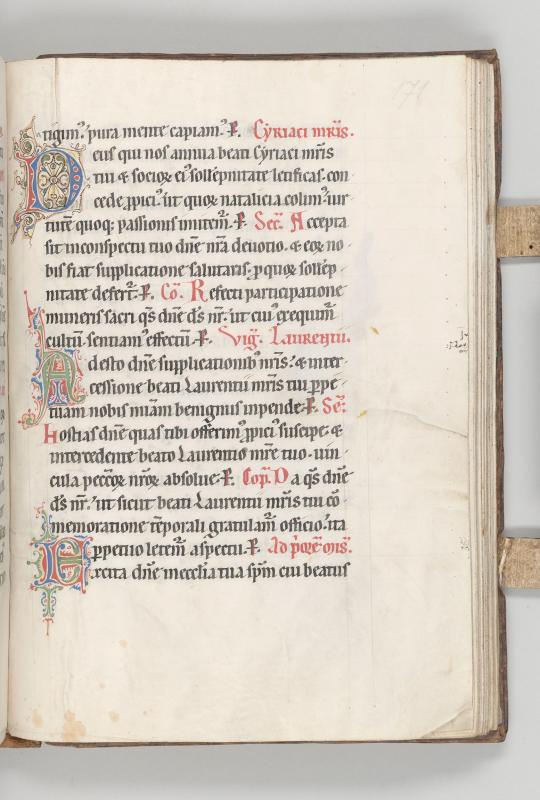 171
tigim᷒. pura mente capiam᷒. P. Cyriaci mr̄is.
Deus qui nos annua beati Cyriaci mr̄is
tui & socior̄ ei᷒ sollēpnitate letificas. con
cede ꝓpici᷒. ut quor̄ natalicia colim᷒. uir
tutē quoq; passionis imitem᷒. P. Sec̄. Accepta
sit inconspectu tuo dn̄e nr̄a deuotio. & eor̄ no
bis fiat supplicatione salutaris. ꝓ quor̄ sollēp
nitate defert᷒. P. Cō. Refecti participatione
muneris sacri qs̄ dn̄e ds̄ nr̄. ut cui᷒ exequim᷒
cultū. sentiam᷒ effectū. P. Vig̃. Laurentii.
Adesto dn̄e supplicationib᷒ nr̄is. & inter
cessione beati Laurentii mr̄is tui ꝑpe
tuam nobis mīam benignus inpende. P. Sec̄.
Hostias dn̄e quas tibi offerim᷒ ꝓpici᷒ suscipe. &
intercedente beato Laurentio mr̄e tuo. uin
cula peccōr̄ nr̄or̄ absolue. P. Cop̄. Da qs̄ dn̄e
ds̄ nr̄. ut sicut beati Laurentii mr̄is tui cō
memoratione tēporali gratulam᷒ officio. ita
ꝑpetuo letem᷒ aspectu. P. Ad p̄ores. oris̄.
Excita dn̄e in ecclīa tua sp̄m cui beatus